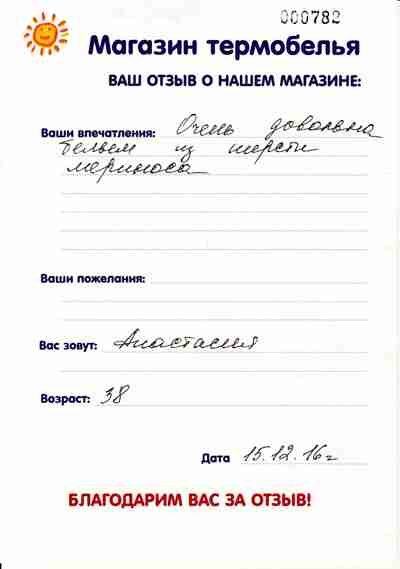 000782
Магазин термобелья
ВАШ ОТЗЫВ О НАШЕМ МАГАЗИНЕ:
Ваши впечатления: Очень довольна
бельем из шерсти
мериноса
Ваши пожелания:
Вас зовут: Анастасия
Возраст: 38
Дата 15.12.16г
БЛАГОДАРИМ ВАС ЗА ОТЗЫВ!